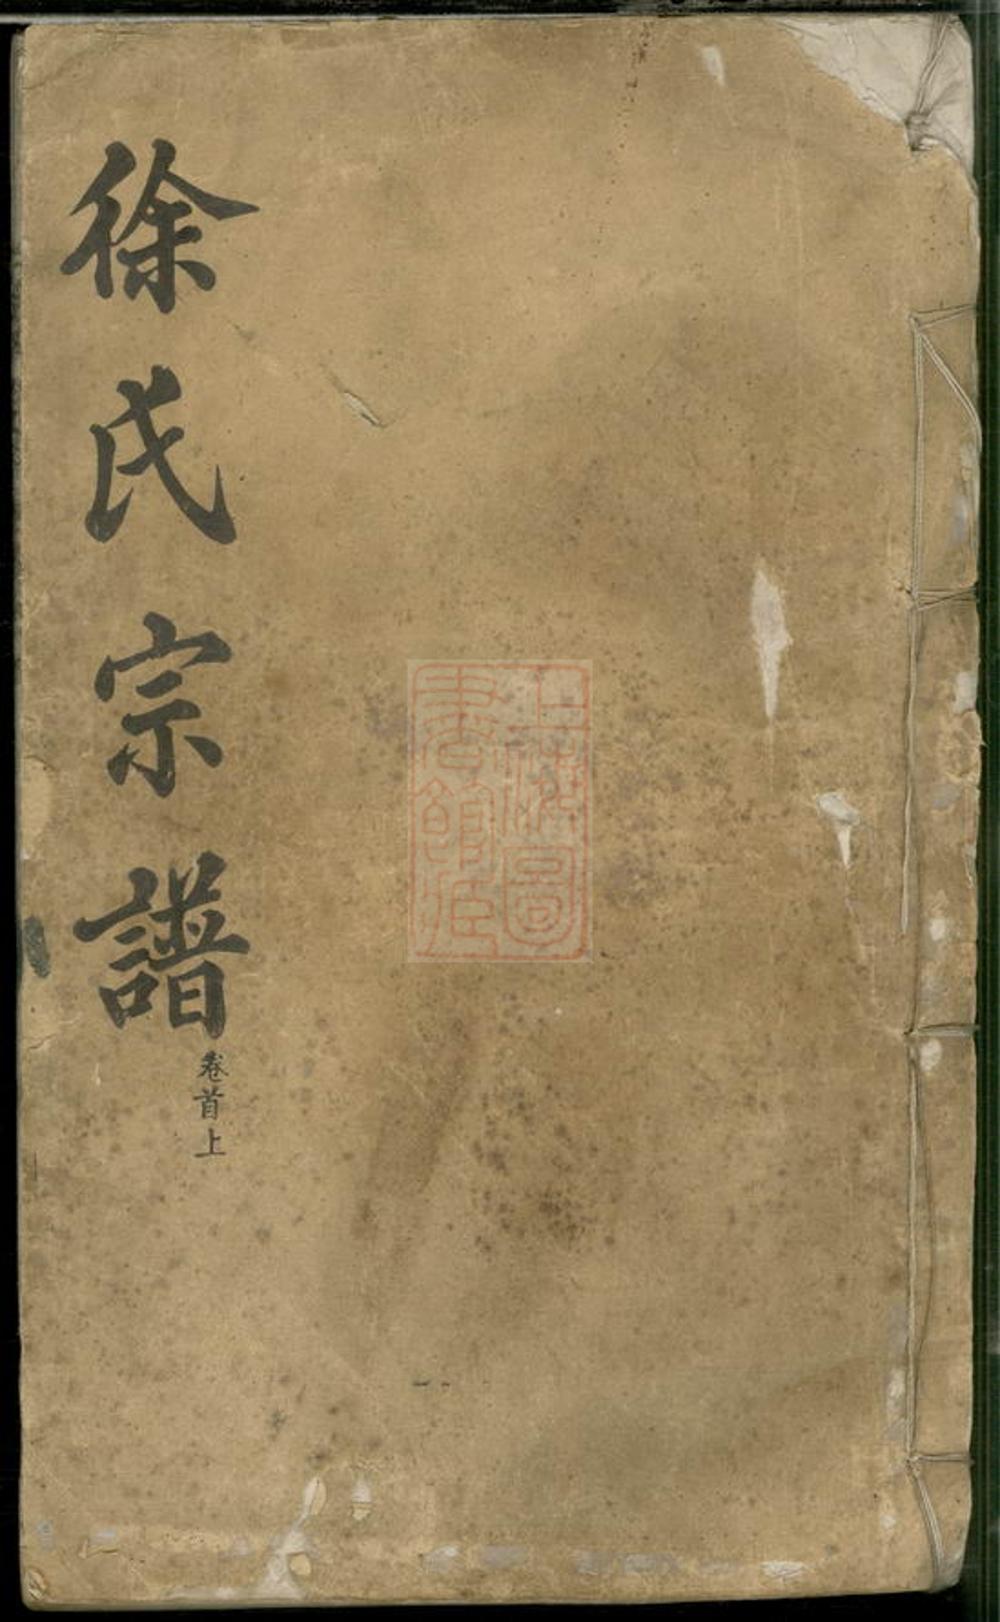 徐氏宗譜
卷首上
上海圖書館藏